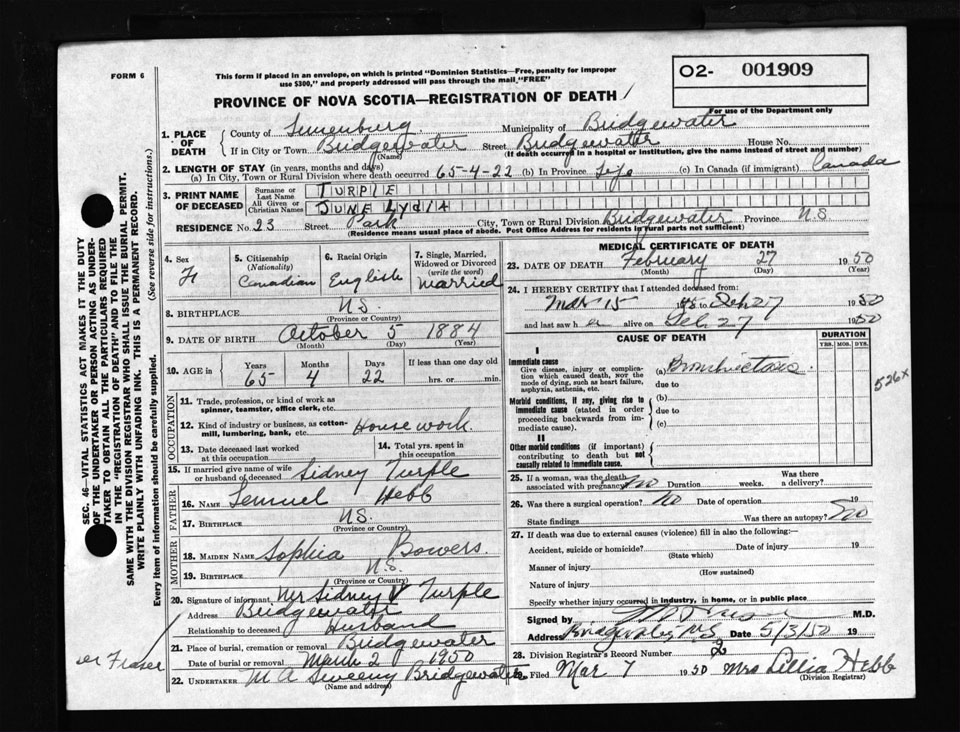 FORM 6
This form if placed in an envelope, on which is printed "Dominion Statistics—Free, penalty for improper
use $300," and properly addressed will pass through the mail "FREE"
O2- 001909
For use of the Department only
PROVINCE OF NOVA SCOTIA—REGISTRATION OF DEATH
1. PLACE OF DEATH
County of Lunenburg Municipality of Bridgewater
If in City or Town Bridgewater Street Bridgewater House No.
(Name) (If death occurred in a hospital or institution, give the name instead of street and number)
2. LENGTH OF STAY (in years, months and days)
(a) In City, Town or Rural Division where death occurred 65-4-22 (b) In Province Life (c) In Canada (if immigrant) Canada
3. PRINT NAME OF DECEASED
Surname or Last Name TURPLE
All Given or Christian Names JUNE LYDIA
RESIDENCE No. 23 Street Park City, Town or Rural Division Bridgewater Province N.S.
(Residence means usual place of abode. Post Office Address for residents in rural parts not sufficient)
4. Sex F
5. Citizenship (Nationality) Canadian
6. Racial Origin English
7. Single, Married, Widowed or Divorced (write the word) Married
8. BIRTHPLACE N.S.
(Province or Country)
9. DATE OF BIRTH October 5 1884
(Month) (Day) (Year)
10. AGE in Years 65 Months 4 Days 22 If less than one day old hrs. or min.
OCCUPATION
11. Trade, profession, or kind of work as spinner, teamster, office clerk, etc.
12. Kind of industry or business, as cotton-mill, lumbering, bank, etc. Housework.
13. Date deceased last worked at this occupation
14. Total yrs. spent in this occupation
15. If married give name of wife or husband of deceased Sidney Turple
FATHER
16. Name Lemuel Hebb
17. Birthplace N.S.
(Province or Country)
MOTHER
18. MAIDEN NAME Sophia Bowers.
19. BIRTHPLACE N.S.
(Province or Country)
20. Signature of informant Sidney Turple
Address Bridgewater
Relationship to deceased Husband
21. Place of burial, cremation or removal Bridgewater
Date of burial or removal March 2 1950
22. UNDERTAKER M A Sweeny Bridgewater
(Name and address)
MEDICAL CERTIFICATE OF DEATH
23. DATE OF DEATH February 27 1950
(Month) (Day) (Year)
24. I HEREBY CERTIFY that I attended deceased from:
Mar 15 to Feb 27 1950
and last saw her alive on Feb. 27 1950
CAUSE OF DEATH
DURATION
YRS. MOS. DYS.
I
Immediate cause
Give disease, injury or complication which caused death, not the mode of dying, such as heart failure, asphyxia, asthenia, etc.
(a) Bronchiectasis.
due to
526X
Morbid conditions, if any, giving rise to immediate cause (stated in order proceeding backwards from immediate cause).
(b)
due to
(c)
II
Other morbid conditions (if important) contributing to death but not causally related to immediate cause.
25. If a woman, was the death associated with pregnancy? No Duration weeks. Was there a delivery?
26. Was there a surgical operation? No Date of operation 19
State findings Was there an autopsy? No
27. If death was due to external causes (violence) fill in also the following:—
Accident, suicide or homicide? Date of injury 19
(State which)
Manner of injury
(How sustained)
Nature of injury
Specify whether injury occurred in industry, in home, or in public place
Signed by M.D.
Address Bridgewater, N.S. Date 5/3/50 19
28. Division Registrar's Record Number 2
29. Filed Mar 7 1950 Mrs Lillia Hebb
(Division Registrar)
Fraser
SEC. 46—VITAL STATISTICS ACT MAKES IT THE DUTY
OF THE UNDERTAKER OR PERSON ACTING AS UNDER-
TAKER TO OBTAIN ALL THE PARTICULARS REQUIRED
IN THE "REGISTRATION OF DEATH" AND TO FILE THE
SAME WITH THE DIVISION REGISTRAR WHO SHALL ISSUE THE BURIAL PERMIT.
WRITE PLAINLY WITH UNFADING INK. THIS IS A PERMANENT RECORD.
Every item of information should be carefully supplied. (See reverse side for instructions.)